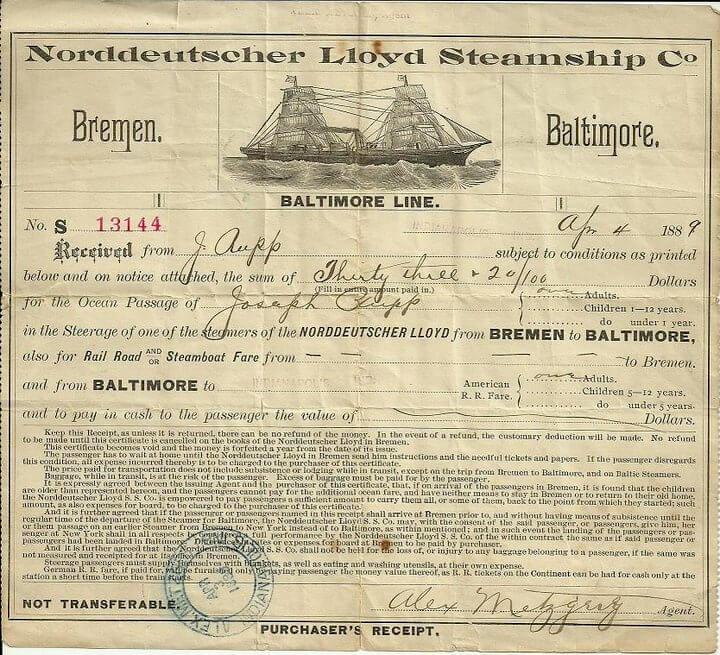 Norddeutscher Lloyd Steamship Co
Bremen.
Baltimore.
BALTIMORE LINE.
No. S 13144 INDIANAPOLIS Apr 4 1889
Received from J. Rupp subject to conditions as printed
below and on notice attached, the sum of Thirty three & 20/100 Dollars
(Fill in entire amount paid in.)
for the Ocean Passage of Joseph Rupp one Adults.
Children 1—12 years.
do under 1 year.
in the Steerage of one of the steamers of the NORDDEUTSCHER LLOYD from BREMEN to BALTIMORE,
also for Rail Road AND OR Steamboat Fare from — — — to Bremen.
and from BALTIMORE to INDIANAPOLIS IND. American R. R. Fare. one Adults.
Children 5—12 years.
do under 5 years.
and to pay in cash to the passenger the value of Dollars.
Keep this Receipt, as unless it is returned, there can be no refund of the money. In the event of a refund, the customary deduction will be made. No refund
to be made until this certificate is cancelled on the books of the Norddeutscher Lloyd in Bremen.
This certificate becomes void and the money is forfeited a year from the date of its issue.
The passenger has to wait at home until the Norddeutscher Lloyd in Bremen send him instructions and the needful tickets and papers. If the passenger disregards
this condition, all expense incurred thereby is to be charged to the purchaser of this certificate.
The price paid for transportation does not include subsistence or lodging while in transit, except on the trip from Bremen to Baltimore, and on Baltic Steamers.
Baggage, while in transit, is at the risk of the passenger. Excess of baggage must be paid for by the passenger.
It is expressly agreed between the issuing Agent and the purchaser of this certificate, that, if on arrival of the passengers in Bremen, it is found that the children
are older than represented hereon, and the passengers cannot pay for the additional ocean fare, and have neither means to stay in Bremen or to return to their old home,
the Norddeutscher Lloyd S. S. Co. is empowered to pay passengers a sufficient amount to carry them all, or some of them, back to the point from which they started; such
amount, as also expenses for board, to be charged to the purchaser of this certificate.
And it is further agreed that if the passenger or passengers named in this receipt shall arrive at Bremen prior to, and without having means of subsistence until the
regular time of the departure of the Steamer for Baltimore, the Norddeutscher Lloyd S. S. Co. may, with the consent of the said passenger, or passengers, give him, her
or them passage on an earlier Steamer from Bremen to New York instead of to Baltimore, as within mentioned; and in such event the landing of the passengers or pas-
senger at New York shall in all respects full performance by the Norddeutscher Lloyd S. S. Co. of the within contract the same as if said passenger or
passengers had been landed in Baltimore. or expenses for board at Bremen to be paid by purchaser.
And it is further agreed that the Norddeutscher Lloyd S. S. Co. shall not be held for the loss of, or injury to any baggage belonging to a passenger, if the same was
not measured and receipted for at in Bremen.
Steerage passengers must supply themselves with blankets, as well as eating and washing utensils, at their own expense.
German R. R. fare, if paid for, will be furnished only by paying passenger the money value thereof, as R. R. tickets on the Continent can be had for cash only at the
station a short time before the train starts.
APR
NOT TRANSFERABLE.
Alex Metzger Agent.
PURCHASER'S RECEIPT.